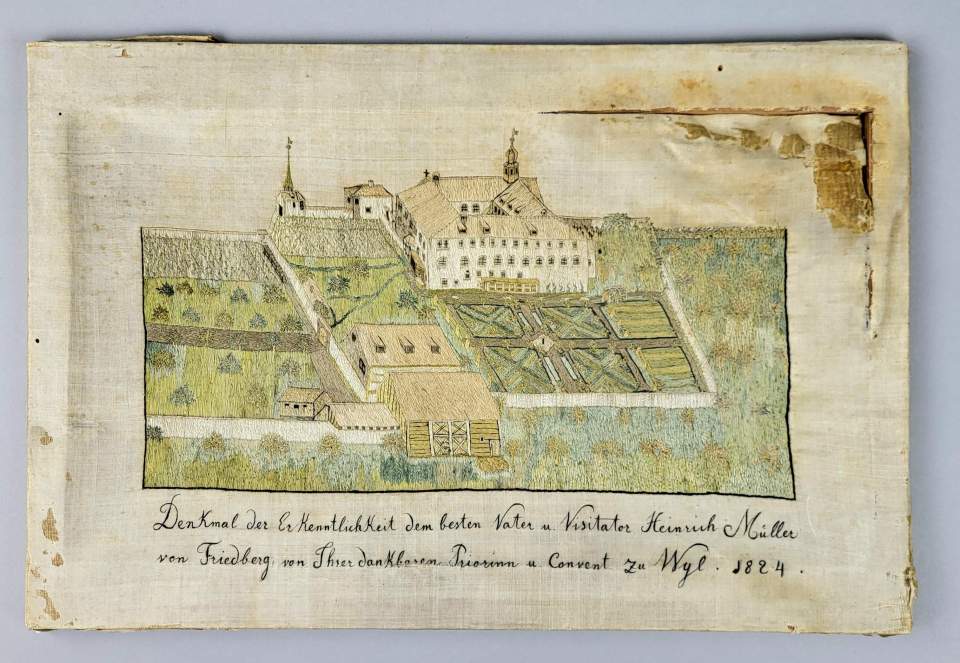 Denkmal der Erkenntlichkeit dem besten Vater u. Visitator Heinrich Müller
von Friedberg, von Ihrer dankbaren Priorinn u. Convent zu Wyl. 1824.